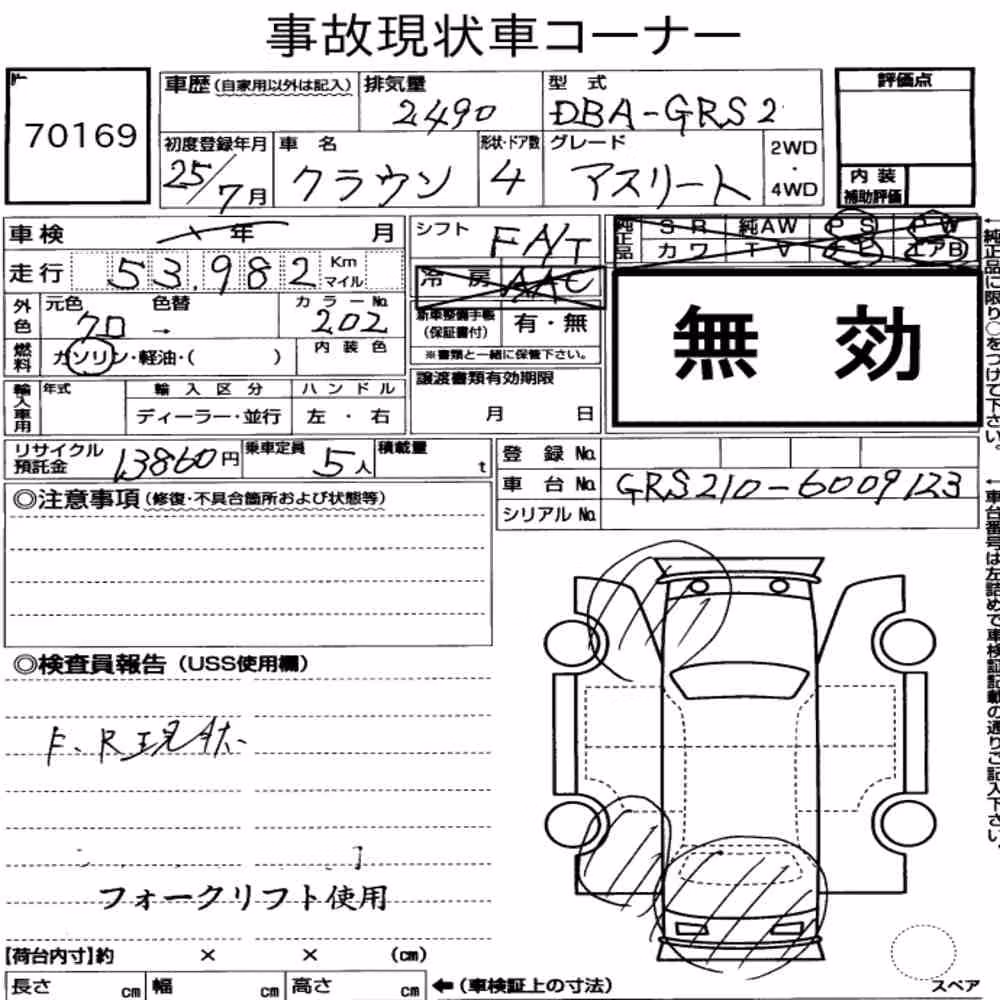 事故現状車コーナー
70169
車歴 (自家用以外は記入) 排気量 型式 評価点
2490 DBA-GRS2
初度登録年月 車名 形状・ドア数 グレード 2WD・4WD
25/7月 クラウン 4 アスリート
内装補助評価
車検 年 月
シフト F A/T
純正品 SR 純AW PS PW
カワ TV エアB
走行 53,982 Km マイル
冷房 AAC
外色 元色 色替 カラーNo.
クロ → 202
新車整備手帳 (保証書付) 有・無
※書類と一緒に保管下さい。
無効
燃料 ガソリン・軽油・( ) 内装色
輸入車用 年式 輸入区分 ハンドル
ディーラー・並行 左・右
譲渡書類有効期限
月 日
←純正品に限り○をつけて下さい。
リサイクル預託金 13860円 乗車定員 5人 積載量 t
登録No.
車台No. GRS210-6009123
シリアルNo.
◎注意事項 (修復・不具合箇所および状態等)
←車台番号は左詰めで車検証記載の通りご記入下さい。
◎検査員報告 (USS使用欄)
F、R現状
フォークリフト使用
【荷台内寸】約 × × (cm)
長さ cm 幅 cm 高さ cm ←(車検証上の寸法)
スペア